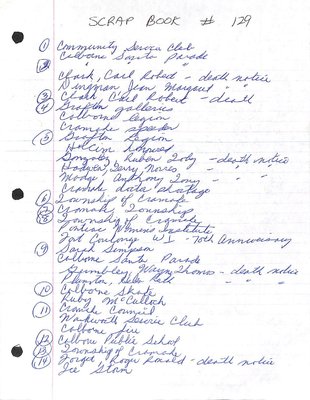 SCRAP BOOK # 129
① Community Service Club
Colborne Santa Parade
② " " "
Clark, Carl Robert - death notice
Dingman Jean Margaret " "
③ Clark, Carl Robert - death
④ Grafton galleries
Colborne Legion
Cramahe speeder
⑤ Grafton Legion
Gonzales, Ruben Toby - death notice
Terry Norris " "
Anthony Tony - " "
Cramahe data strategy
⑥ Township of Cramahe
⑦ Cramahe Township
⑧ Township of Cramahe
Women's Institute
Fort Coulonge W I - 70th Anniversary
⑨ Sarah Simpson
Colborne Santa Parade
Wayne Thomas - death notice
Helen Ruth " "
⑩ Colborne Skate
Ruby McCulloch
⑪ Cramahe Council
Warkworth Service Club
Colborne Fire
⑫ Colborne Public School
⑬ Township of Cramahe
⑭ Roger Ronald - death notice
Ice Storm